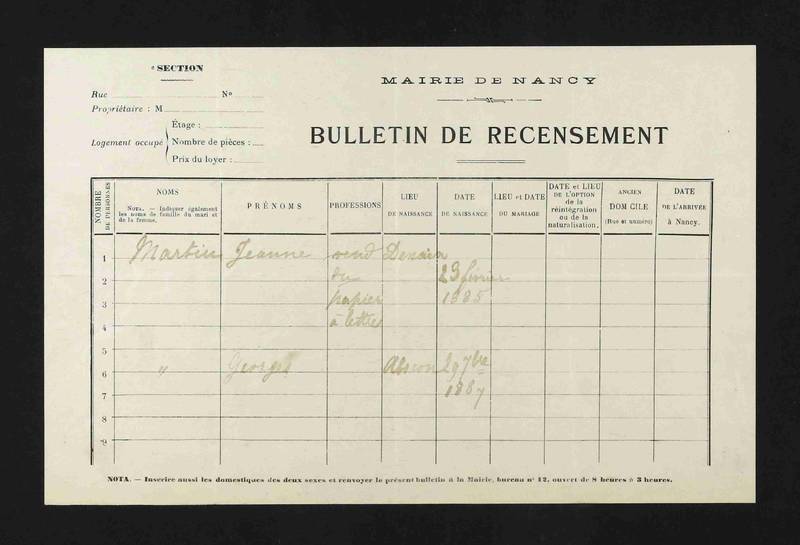 e SECTION
Rue N°
Propriétaire : M
Logement occupé
Étage :
Nombre de pièces :
Prix du loyer :
MAIRIE DE NANCY
BULLETIN DE RECENSEMENT
NOMBRE DE PERSONNES
NOMS
NOTA. — Indiquer également les noms de famille du mari et de la femme.
PRÉNOMS
PROFESSIONS
LIEU DE NAISSANCE
DATE DE NAISSANCE
LIEU et DATE DU MARIAGE
DATE et LIEU DE L'OPTION de la réintégration ou de la naturalisation.
ANCIEN DOM CILE (Rue et numéro)
DATE DE L'ARRIVÉE à Nancy.
1 Martin Jeanne vend Denain
2 du 23 février
3 papier 1885
4 à lettre
5
6 " Georges Abscon 29 7bre
7 1887
8
9
NOTA. — Inscrire aussi les domestiques des deux sexes et renvoyer le présent bulletin à la Mairie, bureau n° 12, ouvert de 8 heures à 3 heures.